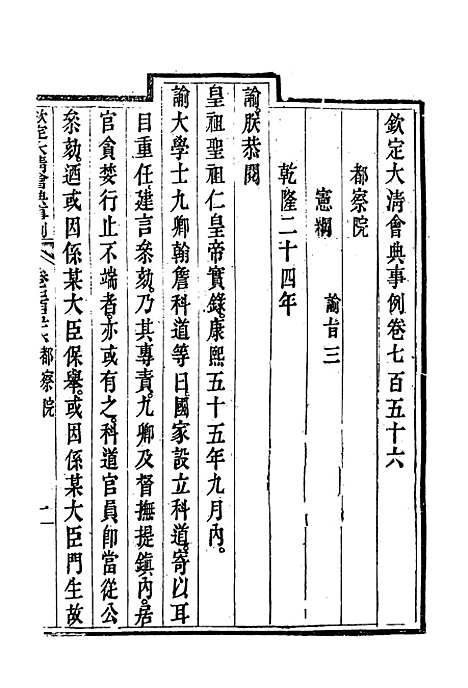 欽定大清會典事例卷七百五十六
都察院
憲綱　諭旨三
乾隆二十四年
諭。朕恭閱
皇祖聖祖仁皇帝實錄。康熙五十五年九月內。
諭大學士九卿翰詹科道等曰。國家設立科道。寄以耳
目重任。建言叅劾。乃其專責。九卿及督撫提鎮內。居
官貪婪。行止不端者。亦或有之。科道官員。卽當從公
叅劾。迺或因係某大臣保舉。或因係某大臣門生故
欽定大清會典事例　卷七百五十六　都察院　一